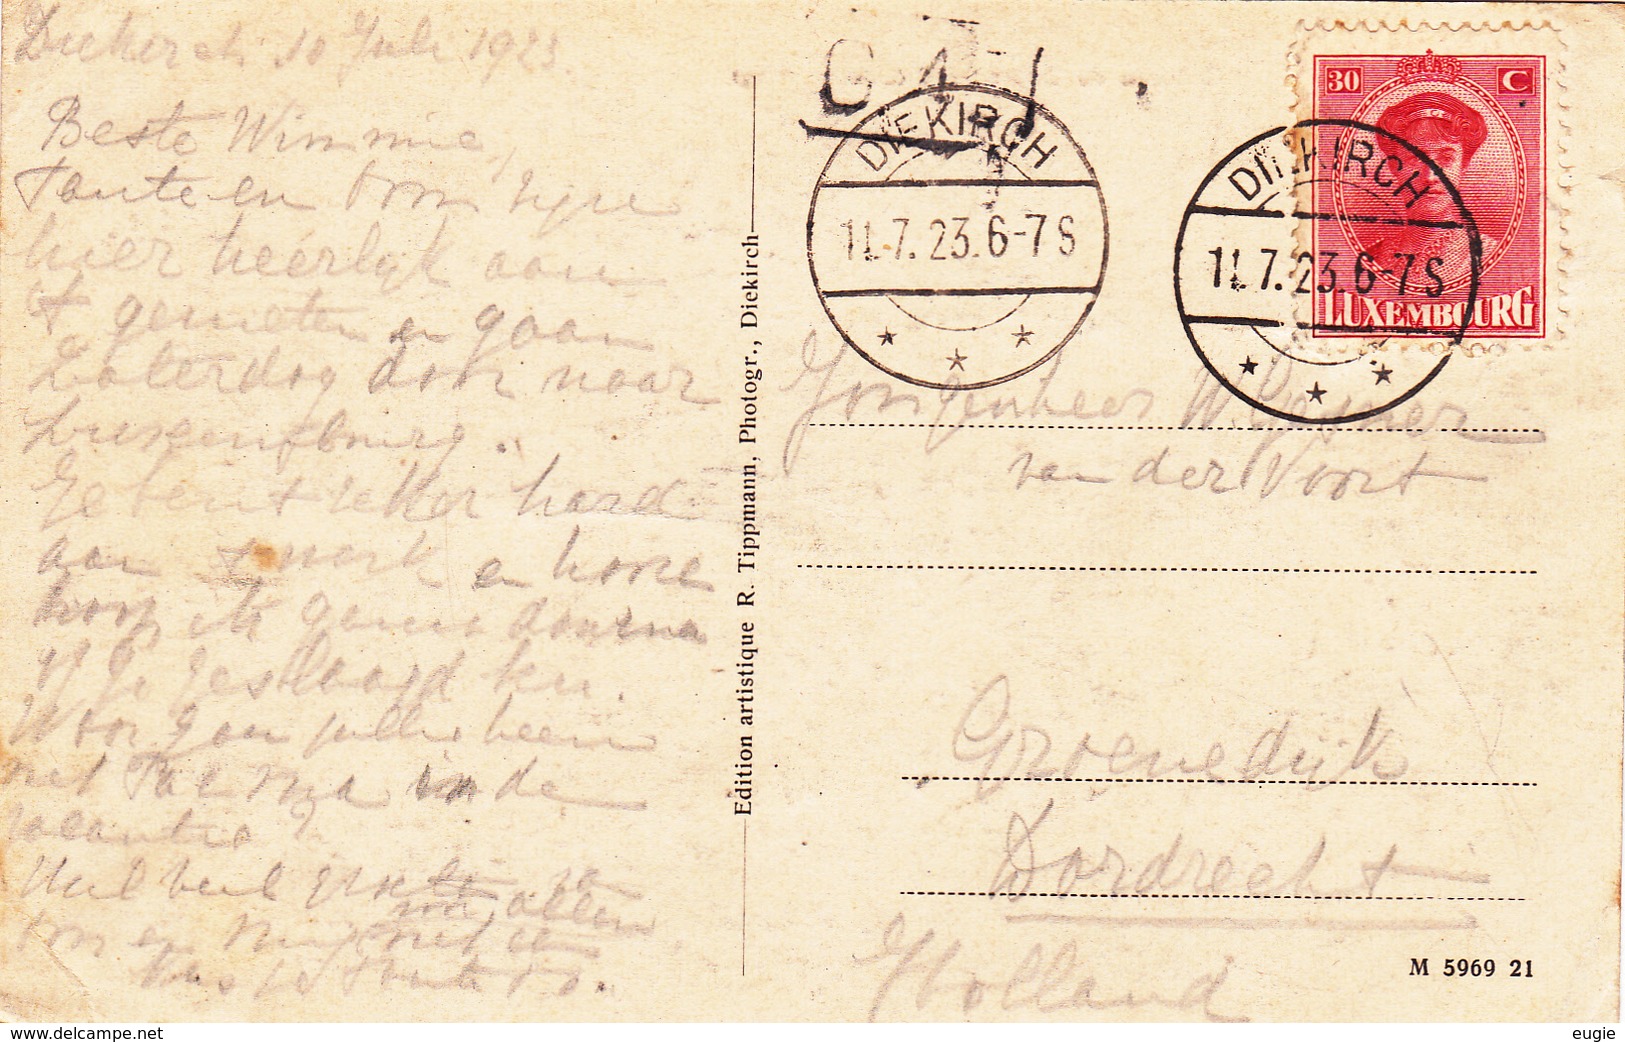 Diekirch 10 Juli 1923.
Beste Wimmie,
Tante en Oom zijn
hier heerlijk aan
't genieten en gaan
Zaterdag door naar
Luxemburg.
Je bent zeker hard
aan 't werk en
hoop ik
of je geslaagd
Waar gaan jullie heen
met Pa en Ma in de
vacantie?
Veel
allen
Oom en
Tante
Edition artistique R. Tippmann, Photogr., Diekirch
DIEKIRCH
11.7.23.6-7S
DIEKIRCH
11.7.23.6-7S
30 C
LUXEMBOURG
Jongenheer W.
van der Voort
Groenedijk
Dordrecht
Holland
M 5969 21
www.delcampe.net
eugie